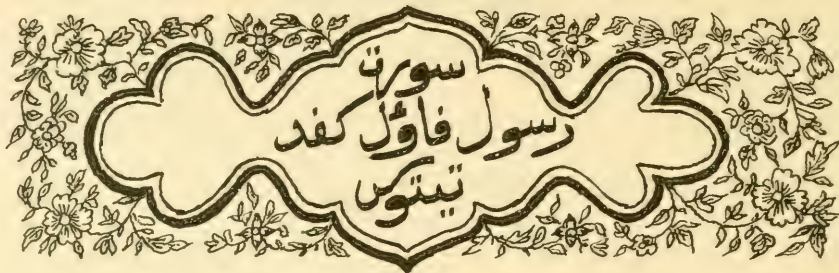 سورت
رسول فاؤل كفد
تيتوس